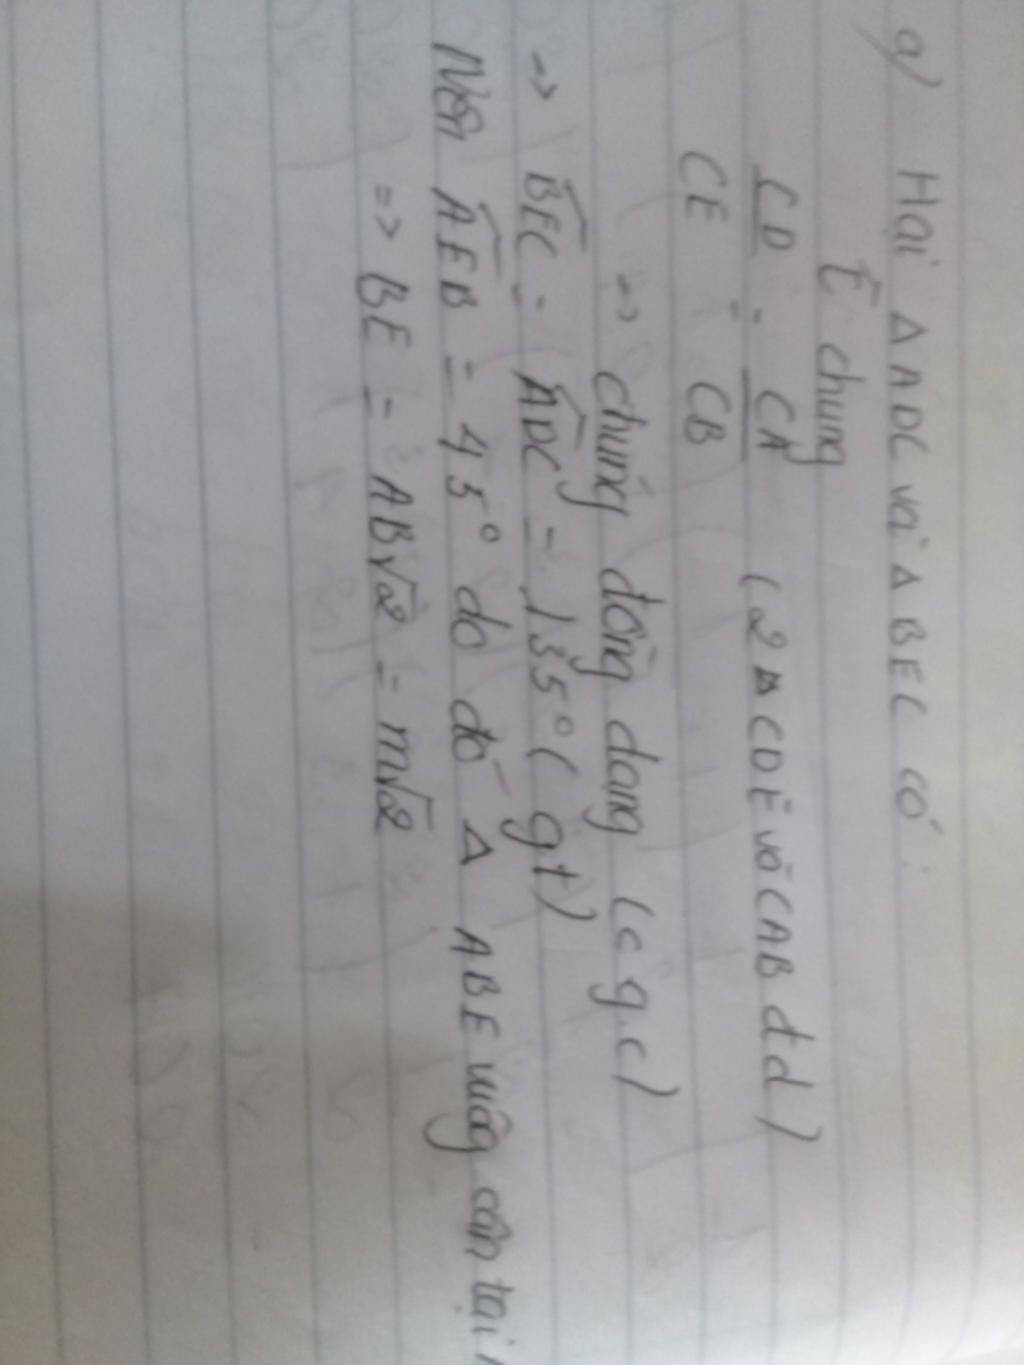 a) Hai Δ ADC và Δ BEC có:
Ê chung
CD/CE = CA/CB (2 Δ CDE và CAB đd)
=> chúng đồng dạng (c.g.c)
=> BEC = ADC = 135° (gt)
Nên AEB = 45° do đó Δ ABE vuông cân tại
=> BE = AB√2 = m√2